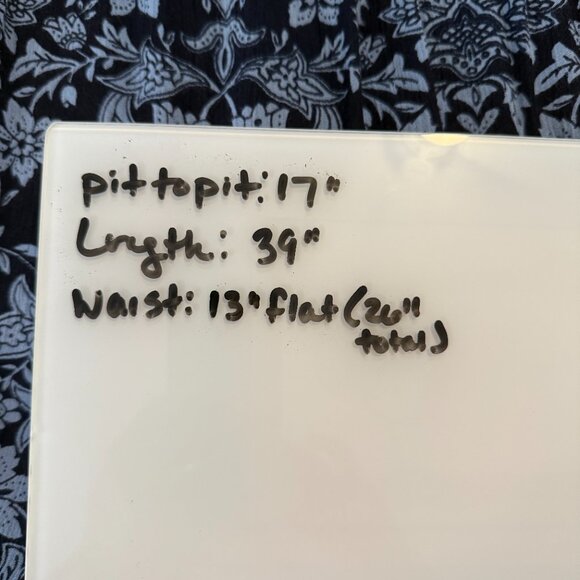 pit to pit: 17"
Length: 39"
Waist: 13" flat (26"
total)